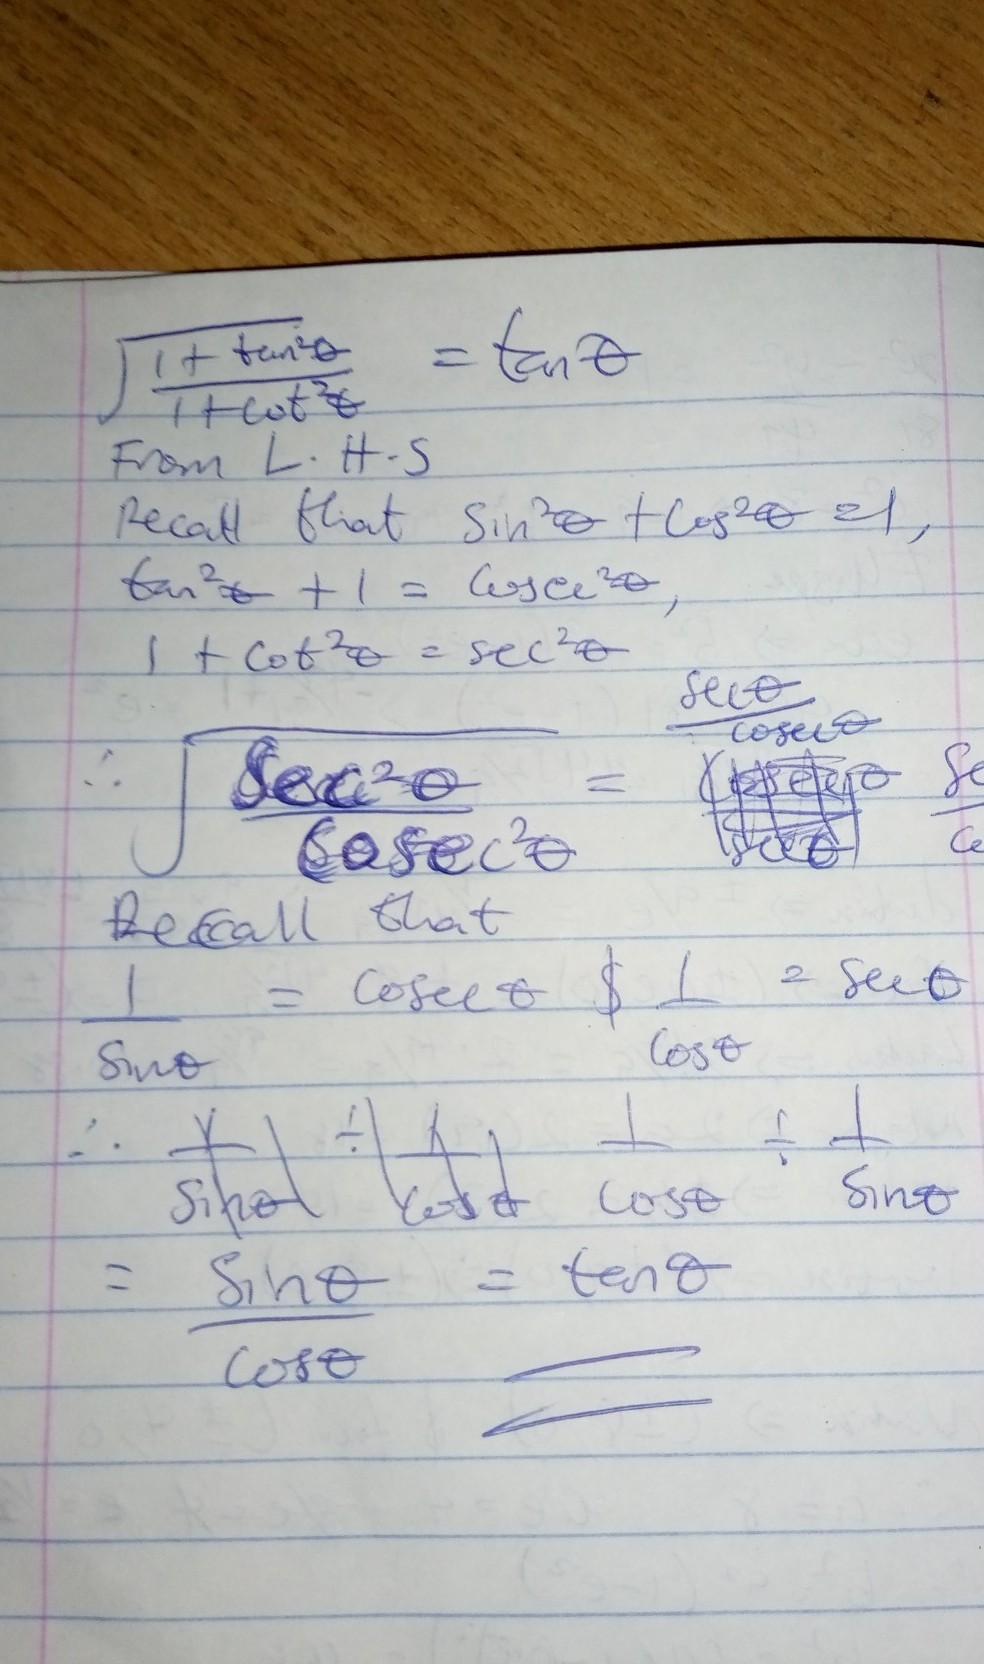 √((1 + tan²θ)/(1 + cot²θ)) = tanθ
From L.H.S
Recall that Sin²θ + Cos²θ = 1,
tan²θ + 1 = Cosec²θ,
1 + Cot²θ = sec²θ
∴ √(Sec²θ/Cosec²θ) = secθ/cosecθ
Recall that
1/Sinθ = Cosecθ $ 1/Cosθ = Secθ
∴ 1/Sinθ ÷ 1/Cosθ 1/Cosθ ÷ 1/Sinθ
= Sinθ/Cosθ = tanθ